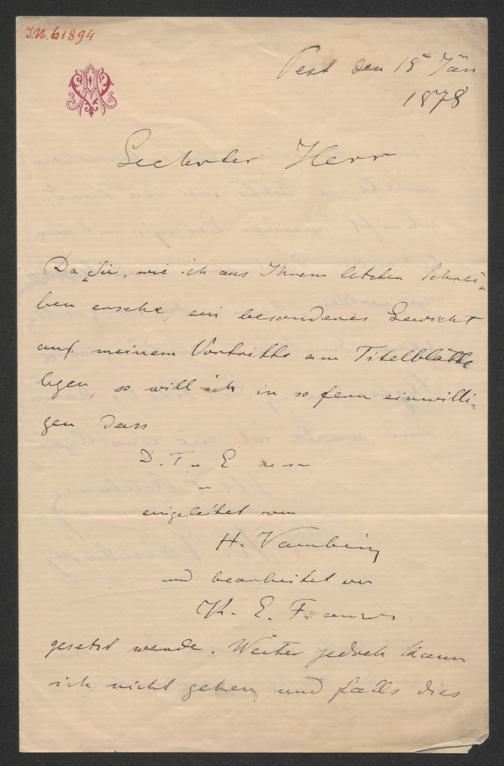 I.N. 61894
Pest den 15 Jän
1878
Geehrter Herr
Da Sie, wie ich aus Ihrem letzten Schrei-
ben ersehe, ein besonderes Gewicht
auf meinem Vortritte am Titelblatte
legen, so will ich in so fern einwilli-
gen dass
D. T. u E
eingeleitet von
H. Vambéry
und bearbeitet von
K. E. Franzos
gesetzt werde. Weiter jedoch kann
ich nicht gehen und falls dies